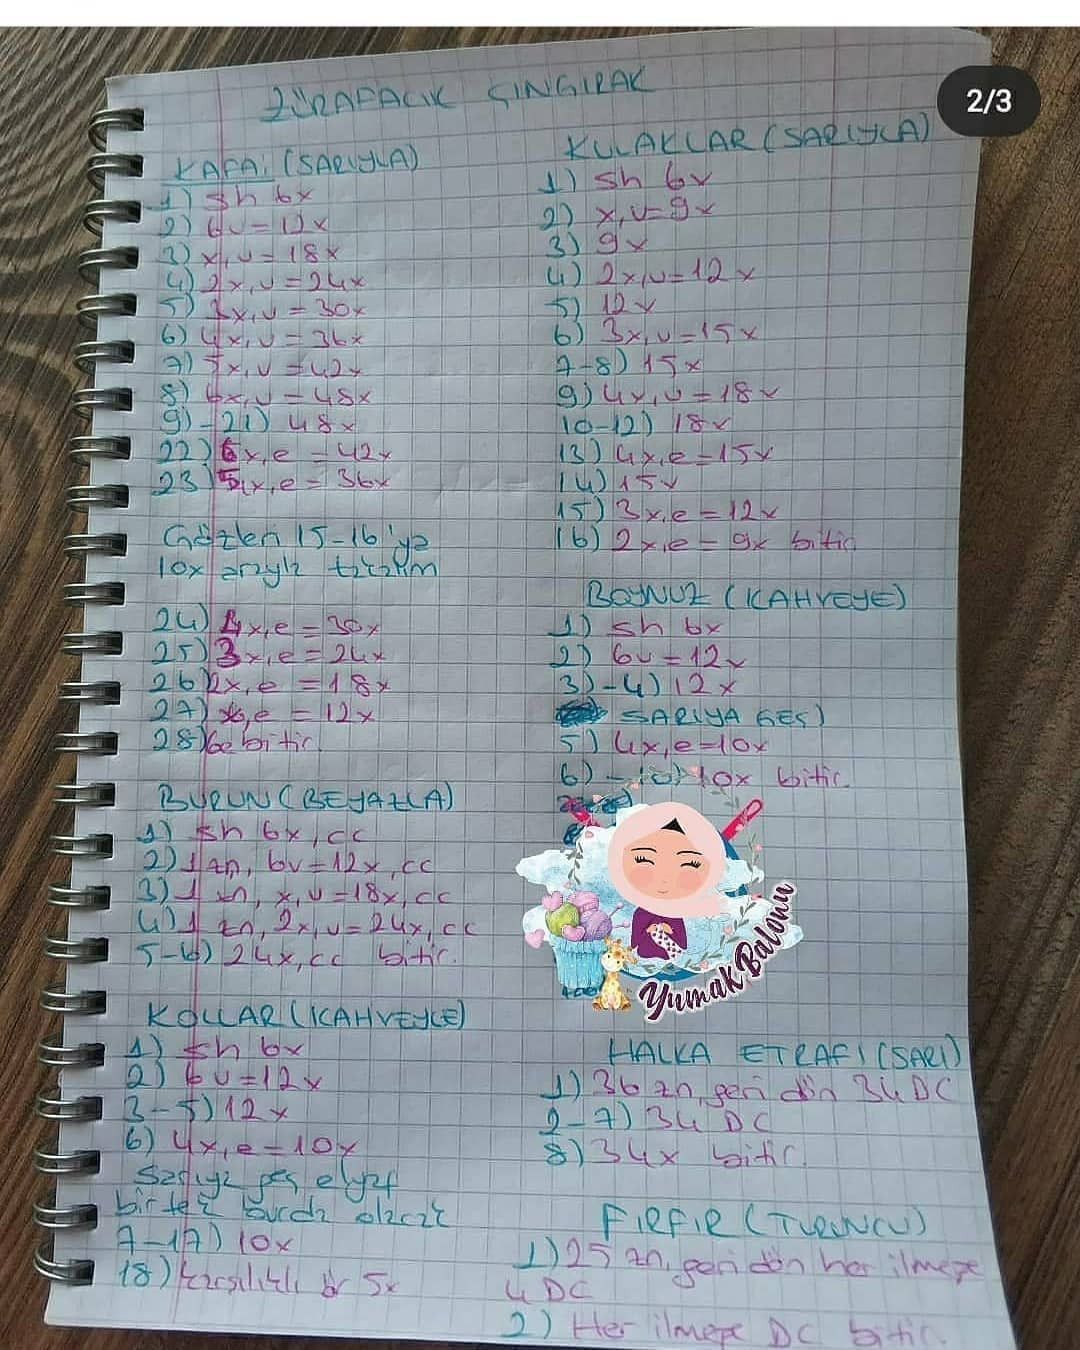 2/3
ZÜRAFACIK ÇINGIRAK
KAFA: (SARIYLA)
1) sh 6x
2) 6v=12x
3) x,v=18x
4) 2x,v=24x
5) 3x,v=30x
6) 4x,v=36x
7) 5x,v=42x
8) 6x,v=48x
9)-21) 48x
22) 6x,e=42x
23) 5x,e=36x
Gözleri 15-16'ya
10x arayla takalım
24) 4x,e=30x
25) 3x,e=24x
26) 2x,e=18x
27) x,e=12x
28) 6e bitir.
BURUN (BEYAZLA)
1) sh 6x,cc
2) 1 zn, 6v=12x,cc
3) 1 zn, x,v=18x,cc
4) 1 zn, 2x,v=24x,cc
5-6) 24x,cc bitir.
KOLLAR (KAHVEYLE)
1) sh 6x
2) 6v=12x
3-5) 12x
6) 4x,e=10x
Sarıya geç elyaf
bir tek burda olacak
7-17) 10x
18) karşılıklı ör 5x
KULAKLAR (SARIYLA)
1) sh 6x
2) x,v=9x
3) 9x
4) 2x,v=12x
5) 12x
6) 3x,v=15x
7-8) 15x
9) 4x,v=18x
10-12) 18x
13) 4x,e=15x
14) 15x
15) 3x,e=12x
16) 2x,e=9x bitir
BOYNUZ (KAHVEYE)
1) sh 6x
2) 6v=12x
3)-4) 12x
SARIYA GEÇ)
5) 4x,e=10x
6)-10) 10x bitir.
Yumak Balonu
HALKA ETRAFI (SARI)
1) 36 zn, geri dön 34 DC
2-7) 34 DC
8) 34x bitir.
FIRFIR (TURUNCU)
1) 25 zn, geri dön her ilmeğe
4 DC
2) Her ilmeğe DC bitir.